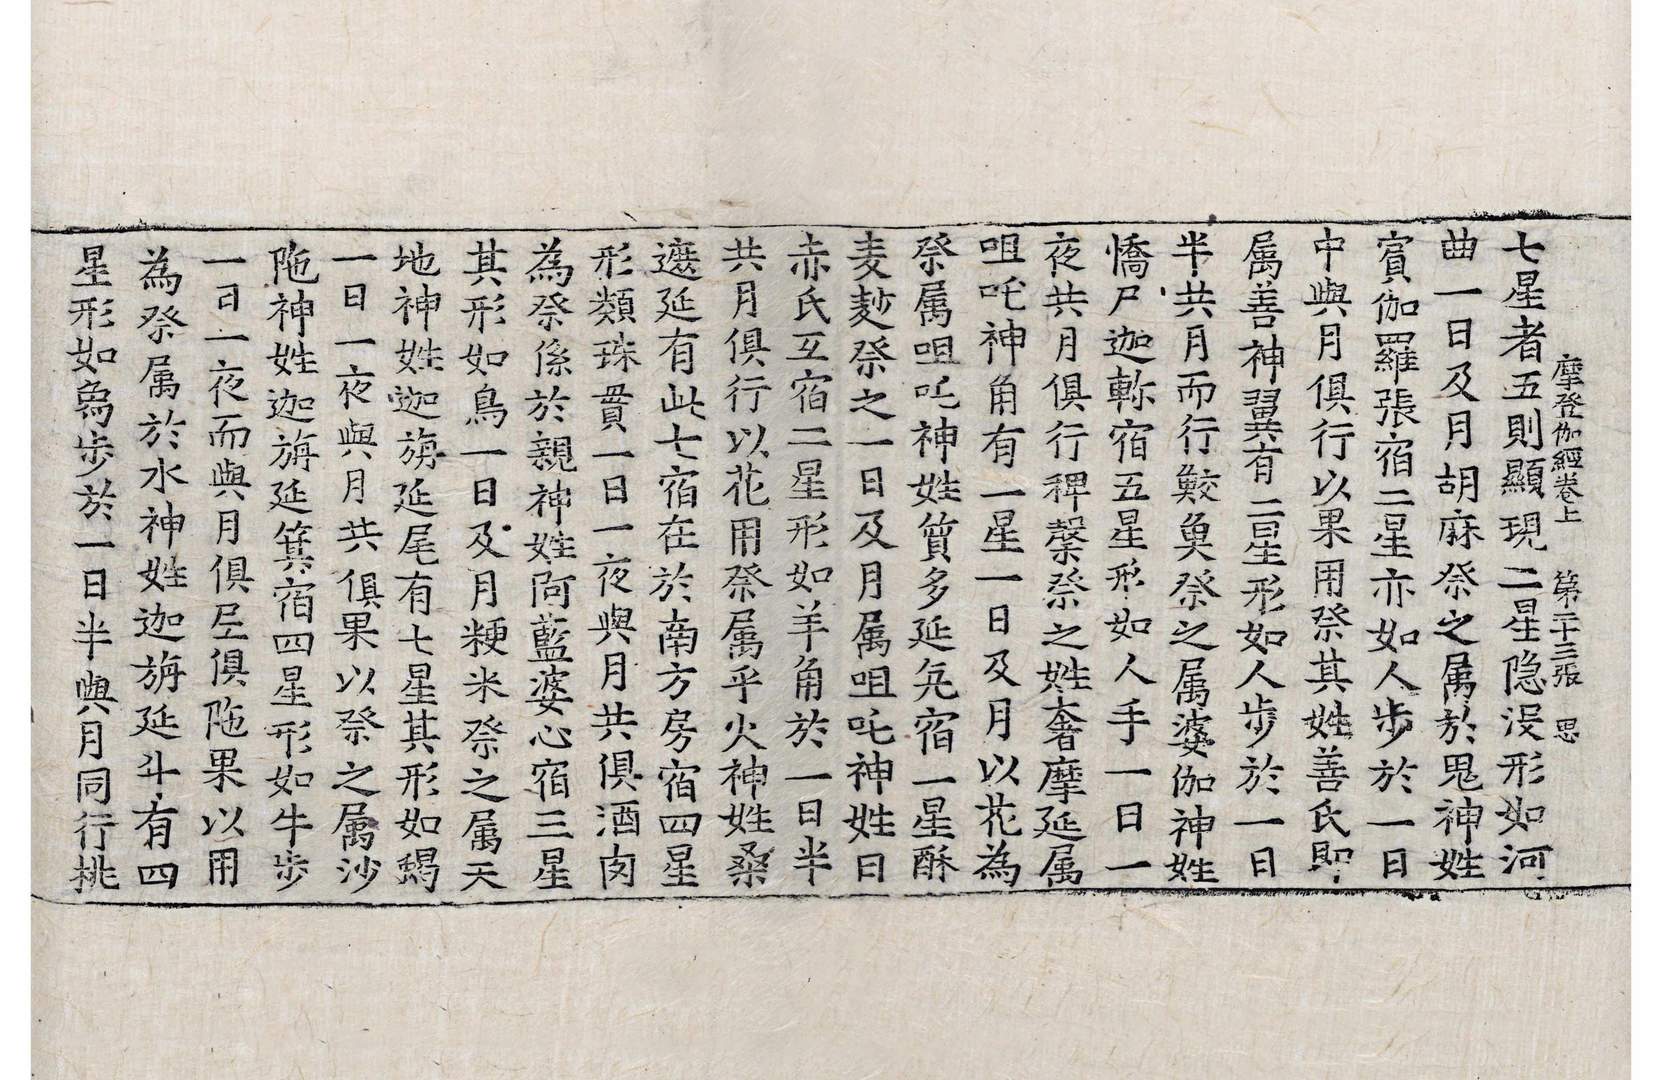 摩登伽經卷上 第二十三張 思
七星者五則顯現二星隐没形如河
曲一日及月胡麻祭之属於鬼神姓
賓伽羅張宿二星亦如人步於一日
中與月俱行以果用祭其姓善氏即
属善神翼有二星形如人步於一日
半共月而行鮫魚祭之属婆伽神姓
憍尸迦軫宿五星形如人手一日一
夜共月俱行稗𥻦祭之姓奢摩延属
咀吒神角有一星一日及月以花為
祭属咀吒神姓質多延亢宿一星酥
麦麨祭之一日及月属咀吒神姓曰
赤氏互宿二星形如羊角於一日半
共月俱行以花用祭属乎火神姓桑
遮延有此七宿在於南方房宿四星
形類珠貫一日一夜與月共俱酒肉
為祭係於親神姓阿藍婆心宿三星
其形如鳥一日及月粳米祭之属天
地神姓迦旃延尾有七星其形如蝎
一日一夜與月共俱果以祭之属沙
陁神姓迦旃延箕宿四星形如牛步
一日一夜而與月俱𡊣俱陁果以用
為祭属於水神姓迦旃延斗有四
星形如象步於一日半與月同行桃